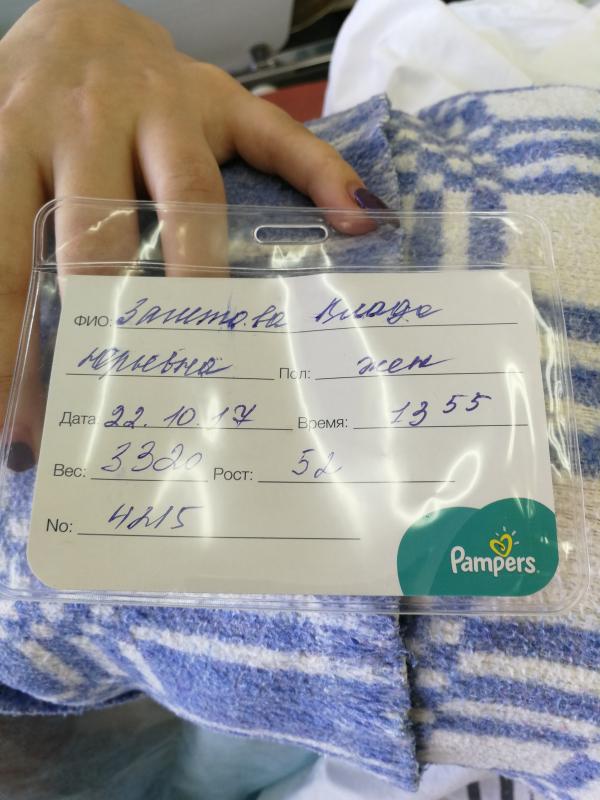 ФИО: Влада
Юрьевна Пол: жен
Дата 22.10.17 Время: 13 55
Вес: 3320 Рост: 52
No: 4215
Pampers